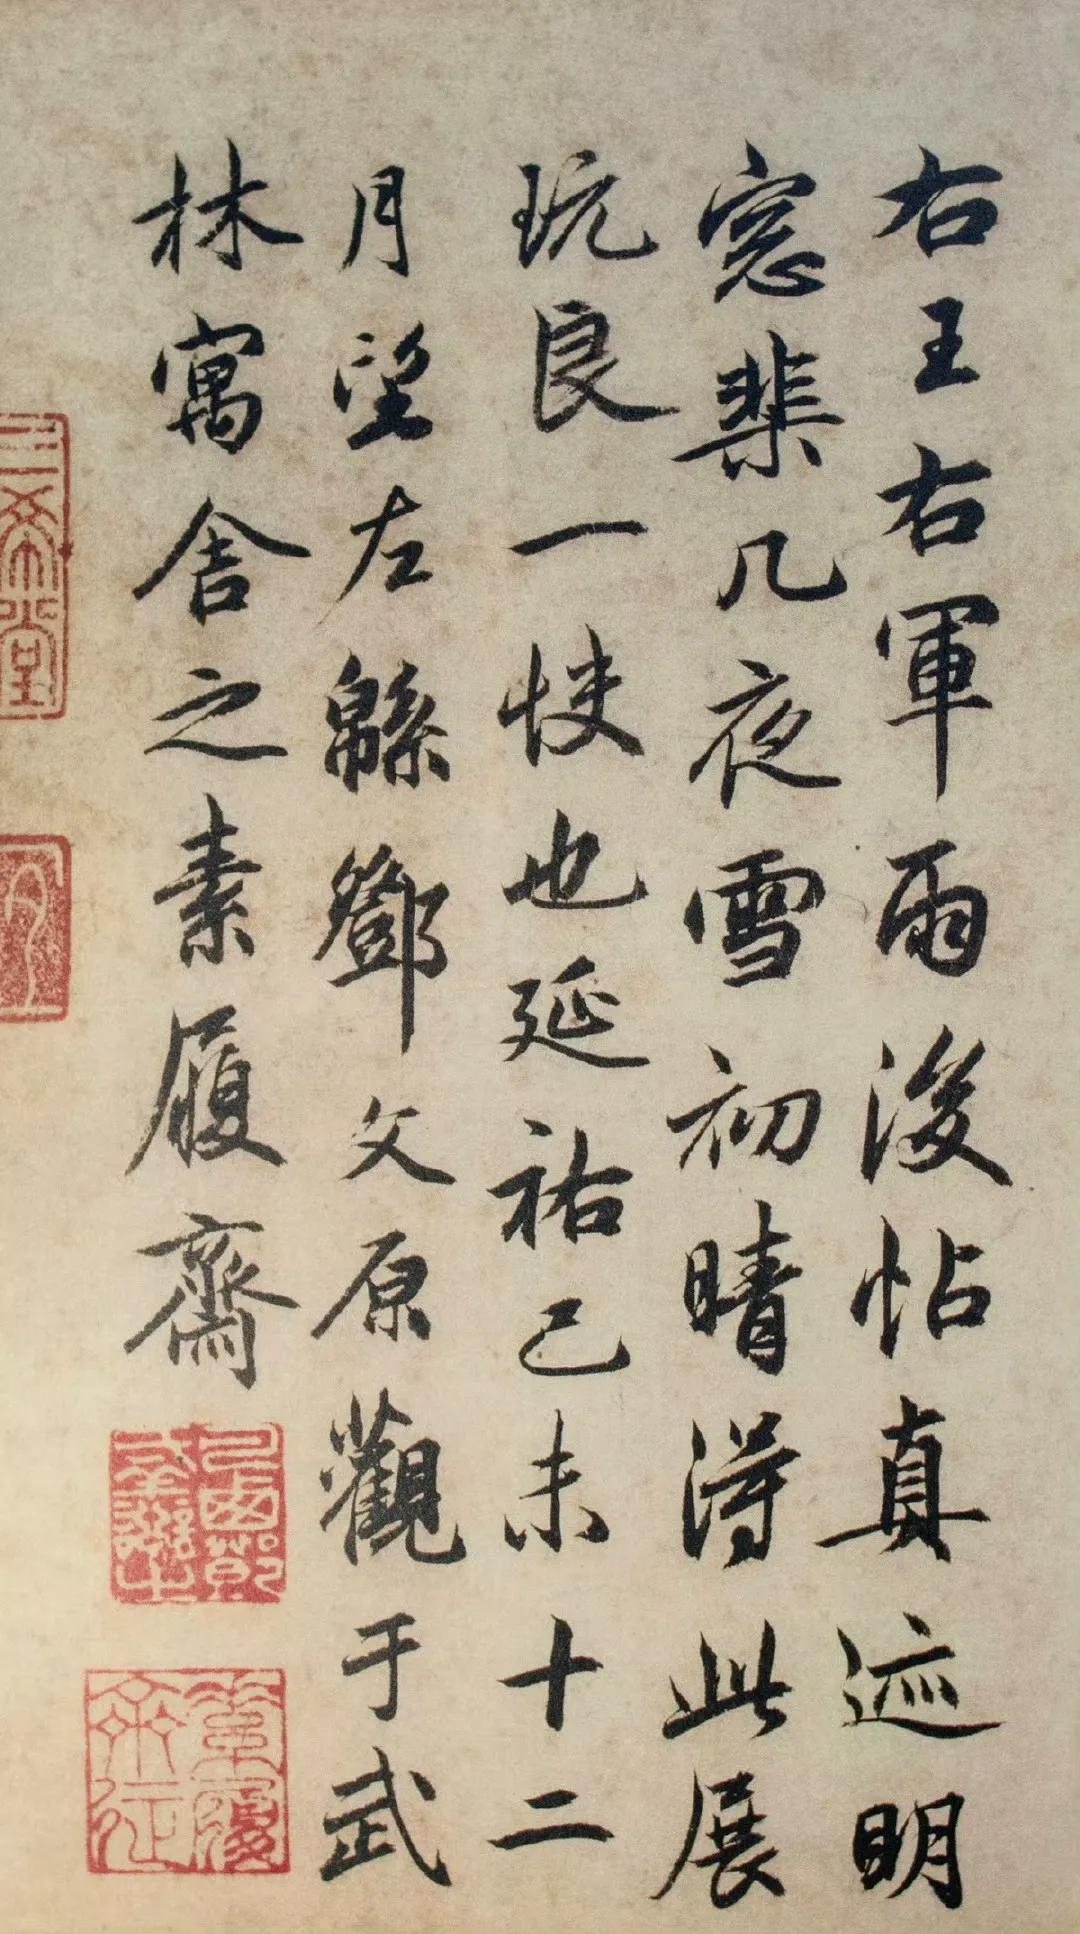 右王右軍雨後帖真迹明
窓棐几夜雪初晴得此展
玩良一快也延祐己未十二
月望左緜鄧文原觀于武
林寓舍之素履齋
三希堂